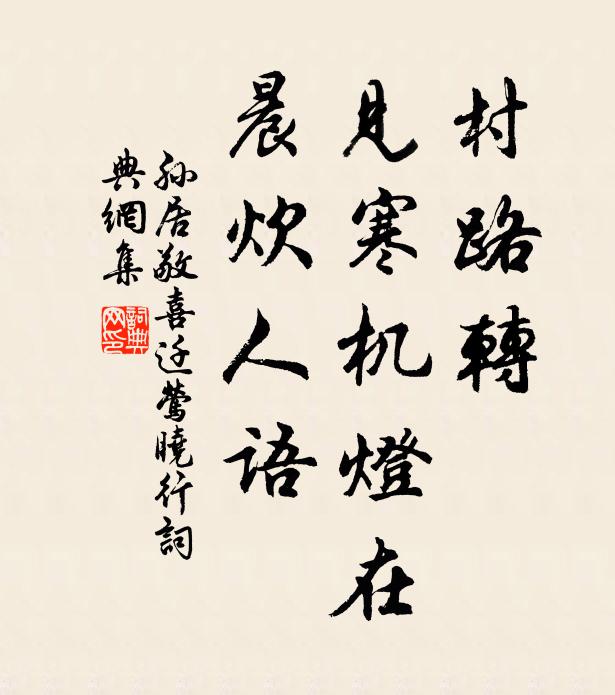 村路轉
見寒机燈在
晨炊人语
孙居敬喜迁鶯曉行詞
典網集
詞典
网印